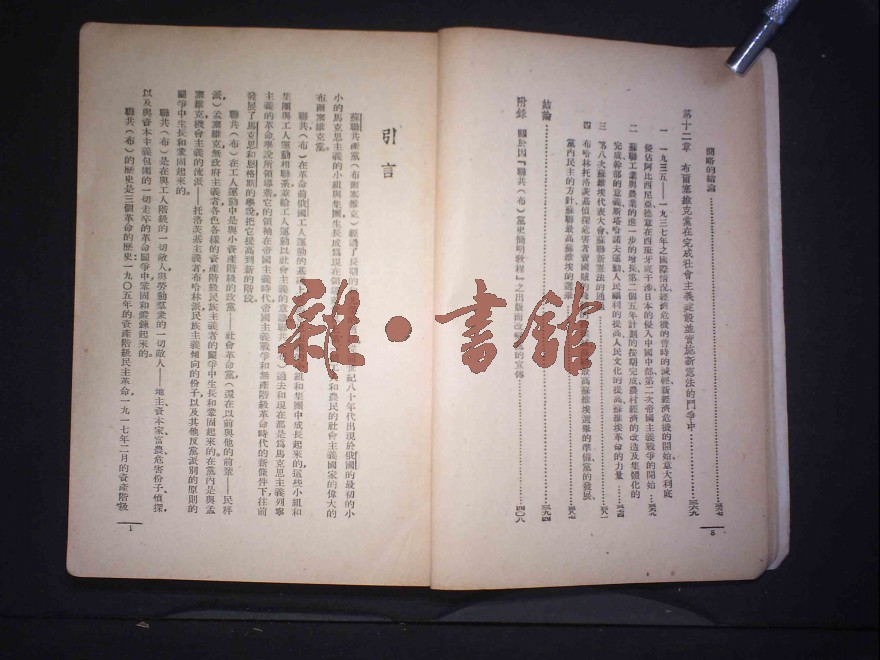 簡略的結論
第十二章 布爾塞維克黨在完成社會主義建設並實施新憲法的鬥爭中 三六九
一 一九三五——一九三七年之國際情況經濟危機的暫時的減輕新經濟危機的開始意大利底
侵佔阿比西尼亞德意在西班牙底干涉日本的侵入中國中部第二次帝國主義戰爭的開始
二 蘇聯工業與農業的進一步的增長第二個五年計劃的按期完成農村經濟的改造及集體化的
完成幹部的意義斯塔哈諾夫運動人民福利的提高人民文化的提高蘇維埃革命的力量
三 第八次蘇維埃代表大會蘇聯新憲法的通
四 布哈林托洛茨基偵探危害者賣國
最高蘇維埃選舉的準備黨的發展
黨內民主的方針蘇聯最高蘇維埃的選舉
結論 三九四
附錄 關於因『聯共(布)黨史簡明教程』之出版而改
的宣傳 四〇八
8
引言
蘇聯共產黨(布爾塞維克)經過了長期的
世紀八十年代出現於俄國的最初的小
小的馬克思主義的小組與集團生長成為現在領導
和農民的社會主義國家的偉大的
布爾塞維克黨。
聯共(布)在革命前俄國工人運動的基
組和集團中成長起來的這些小組和
集團與工人運動相聯系並給工人運動以社會主義的意識聯共
過去和現在都是為馬克思主義列寧
主義的革命學說所領導着它的領袖在帝國主義時代帝國主義戰爭和無產階級革命時代的新條件下往前
發展了馬克思和恩格斯的學說把它提高到新的階段。
聯共(布)在工人運動中是與小資產階級的政黨——社會革命黨(還在以前與他的前輩——民粹
派)孟塞維克無政府主義者各色各樣的資產階級民族主義者的鬥爭中生長和鞏固起來的在黨內是與孟
塞維克機會主義的流派——托洛茨基主義者布哈林派民族主義傾向的份子以及其他反黨派別的原則的
鬥爭中生長和鞏固起來的。
聯共(布)是在與工人階級的一切敵人與勞動羣衆的一切敵人——地主資本家富農危害份子偵探
以及與資本主義包圍的一切走卒的革命鬥爭中鞏固和鍛鍊起來的。
聯共(布)的歷史是三個革命的歷史:一九〇五年的資產階級民主革命一九一七年二月的資產階級
1
雜·書館